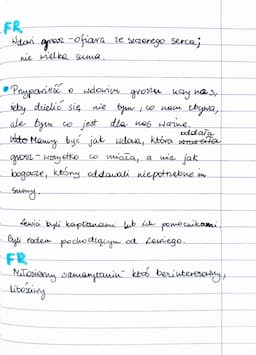 FR
Wdowi grosz - ofiara ze szczerego serca;
nie wielka suma.
• Przypowieść o wdowim groszu uczy nas,
żeby dzielić się nie tym, co nam zbywa,
ale tym co jest dla nas ważne.
Mamy być jak wdowa, która oddała
grosz - wszystko co miała, a nie jak
bogacze, którzy oddawali niepotrzebne im
sumy.
Lewici byli kapłanami lub ich pomocnikami.
Byli rodem pochodzącym od Lewiego.
FR
Miłosierny samarytanin - ktoś bezinteresowny,
litościwy